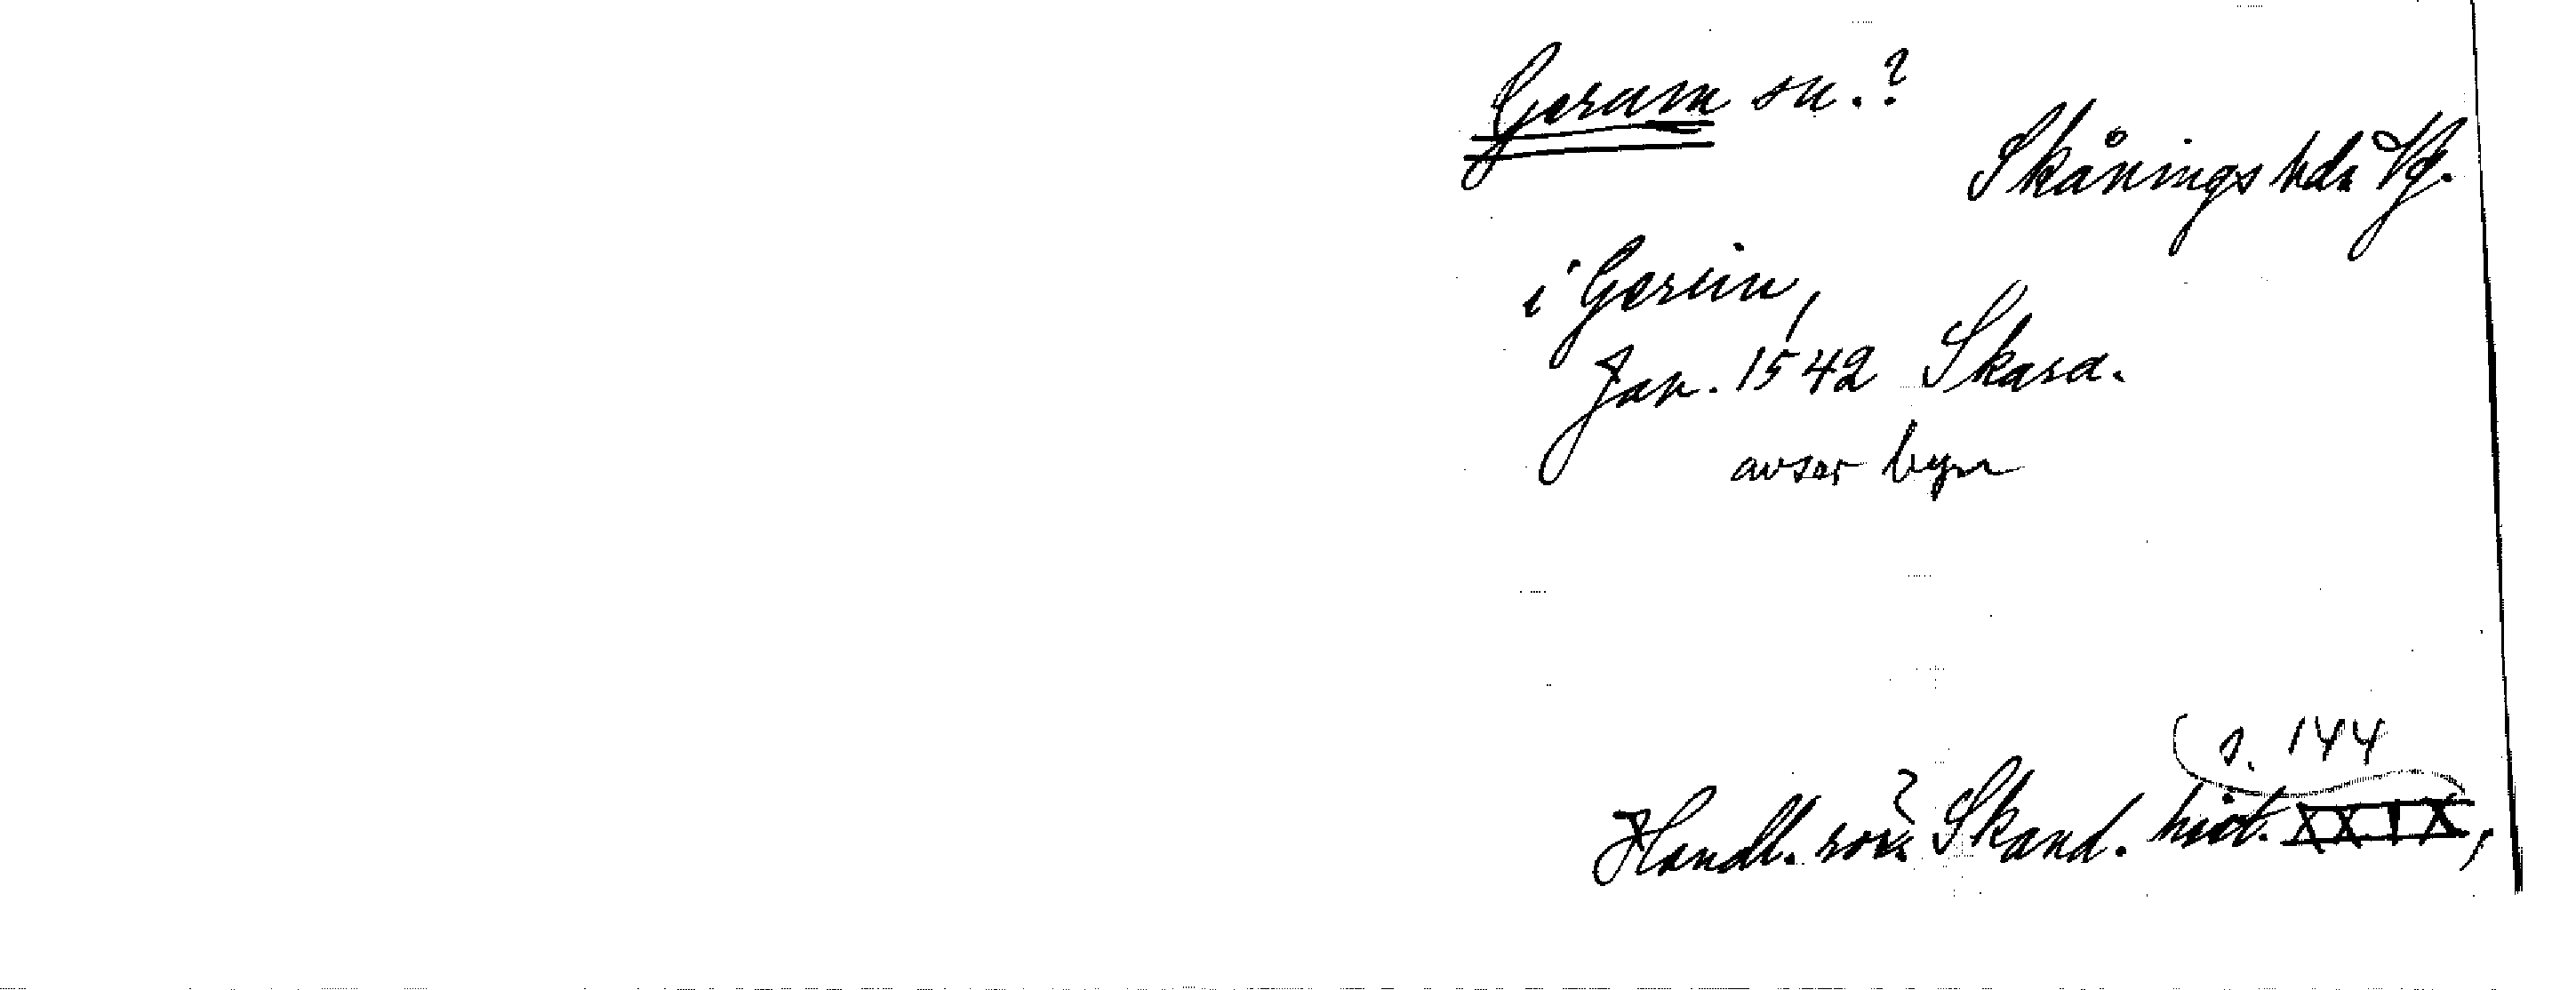 Gerum sn.?
Skånings hd Vg.
i Gerum,
Jan. 1542 Skara.
avser byn
s. 144
Handl. rör. Skand. hist. XXIX,